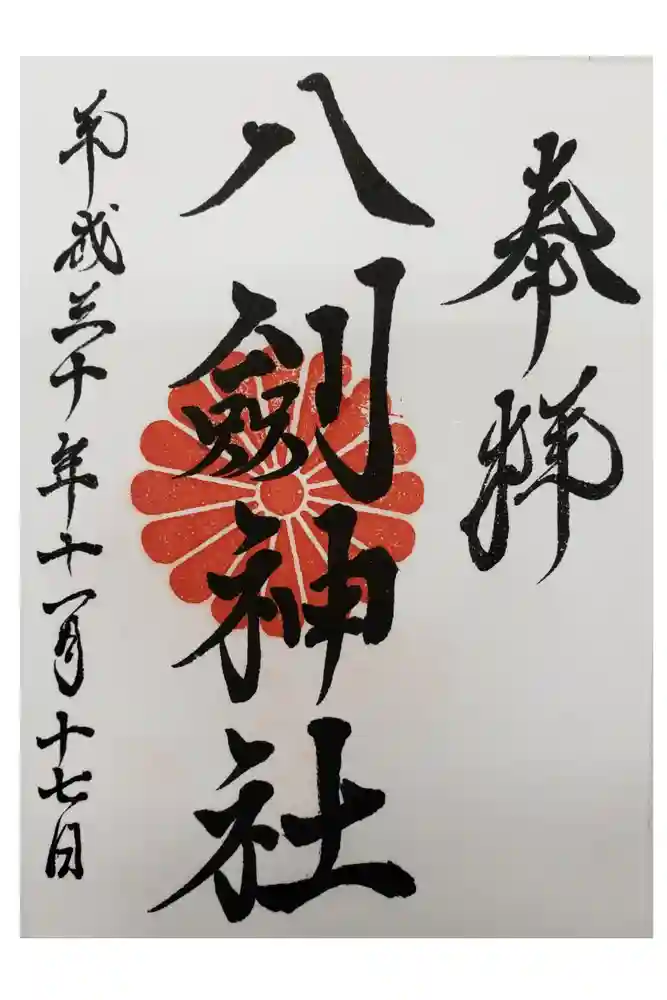 奉拝
八剱神社
平成三十年十一月十七日